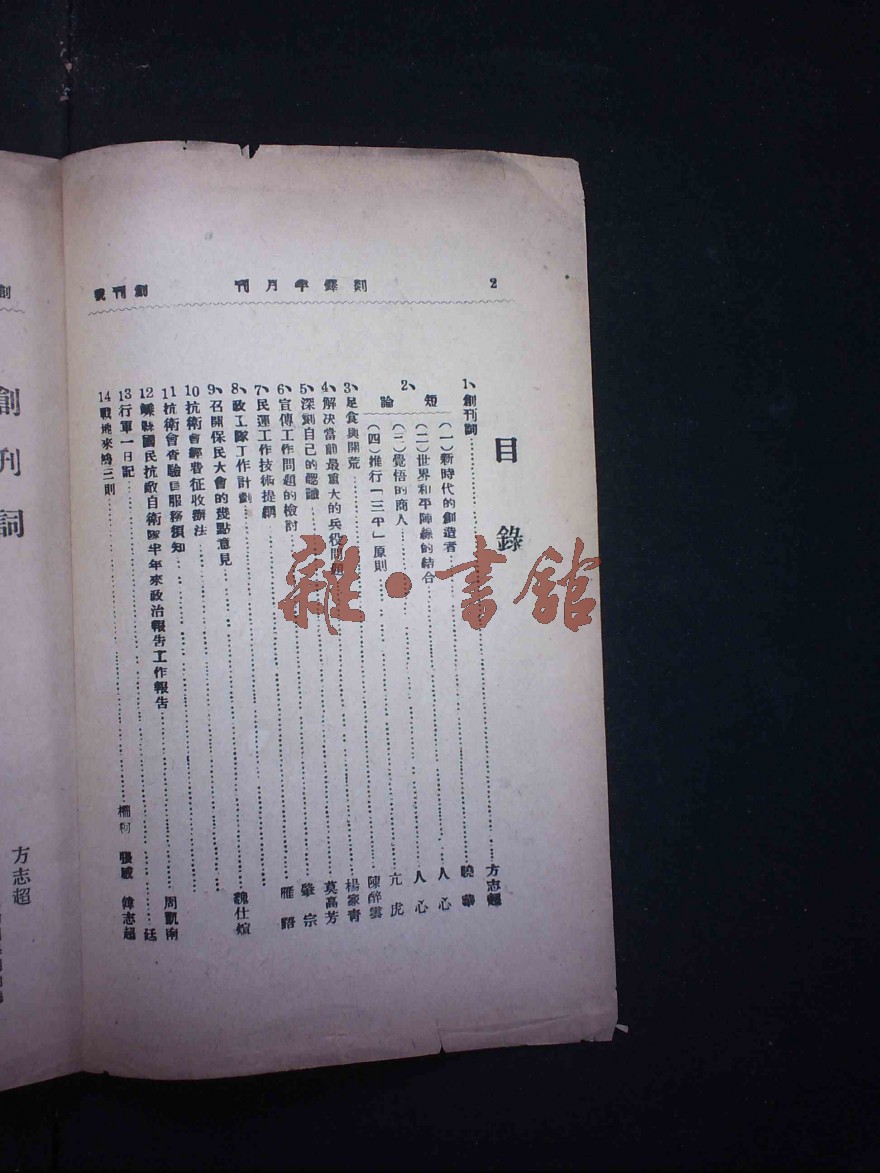 2 剡 半月刊 創刊號
目錄
1、創刊詞 方志超
2、短論
(一)新時代的創造者 曉華
(二)世界和平陣線的結合 人心
(三)覺悟的商人 人心
(四)推行「三平」原則 亢虎
3、足食與開荒 陳醉雲
4、解决當前最重大的兵役問題 楊家青
5、深刻自己的認識 莫高芳
6、宣傳工作問題的檢討 肇宗
7、民運工作技術提綱 雁
8、政工隊工作計劃
9、召開保民大會的幾點意見 魏仕煊
10抗衛會經費征收辦法
11抗衛會查驗 服務須知
12嵊縣國民抗敵自衛隊半年來政治報告工作報告 周凱南
13行軍一日記 廷
14戰地來鴻三則 柯 張敏 韓志超
創
創刊詞
方志超